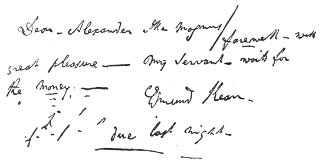 Dear Alexander the magnus / foremost – with
great pleasure — my servant – wait for
the money. — Edmund Kean.
due last night –